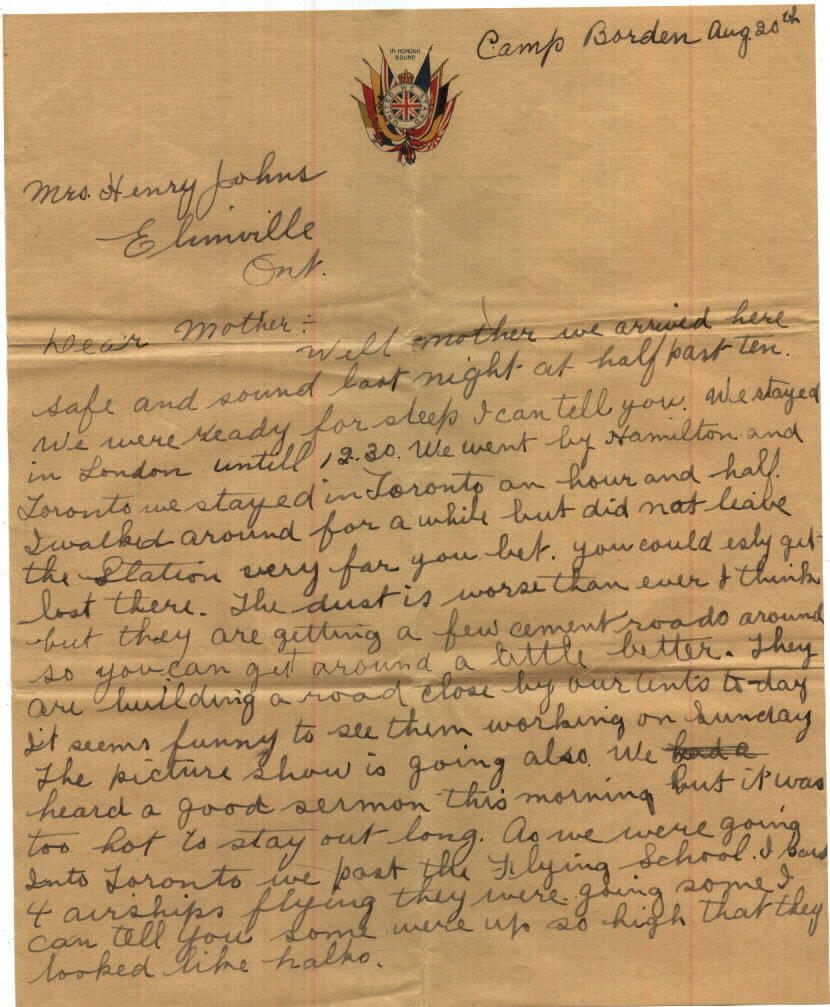 Camp Borden Aug. 20th
IN HONOUR
BOUND
UNITED WE STAND
Mrs. Henry Johns
Elimville
Ont.
Dear Mother:-
Well mother we arrived here
safe and sound last night at half past ten.
We were ready for sleep I can tell you. We stayed
in London untill 12.30. We went by Hamilton and
Toronto we stayed in Toronto an hour and half.
I walked around for a while but did not leave
the Station very far you bet. you could esly get
lost there. The dust is worse than ever I think
but they are getting a few cement roads around
so you can get around a little better. They
are building a road close by our tents to-day
It seems funny to see them working on Sunday
The picture show is going also. We had a
heard a good sermon this morning but it was
too hot to stay out long. As we were going
Into Toronto we past the Flying School. I saw
4 airships flying they were going some I
can tell you some were up so high that they
looked like